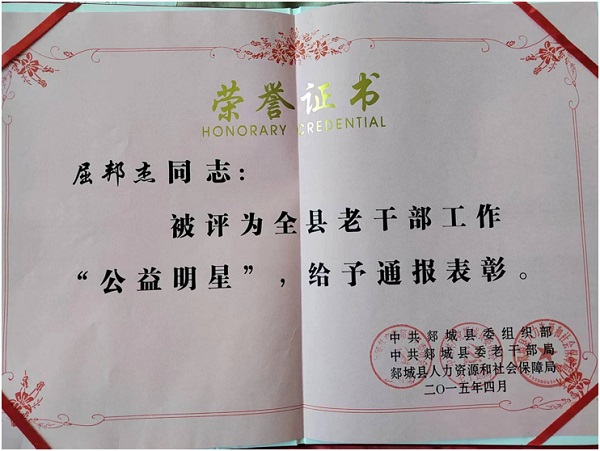 荣誉证书
HONORARY CREDENTIAL
屈邦杰同志：
被评为全县老干部工作
“公益明星”，给予通报表彰。
中共郯城县委组织部
中共郯城县委老干部局
郯城县人力资源和社会保障局
二〇一五年四月